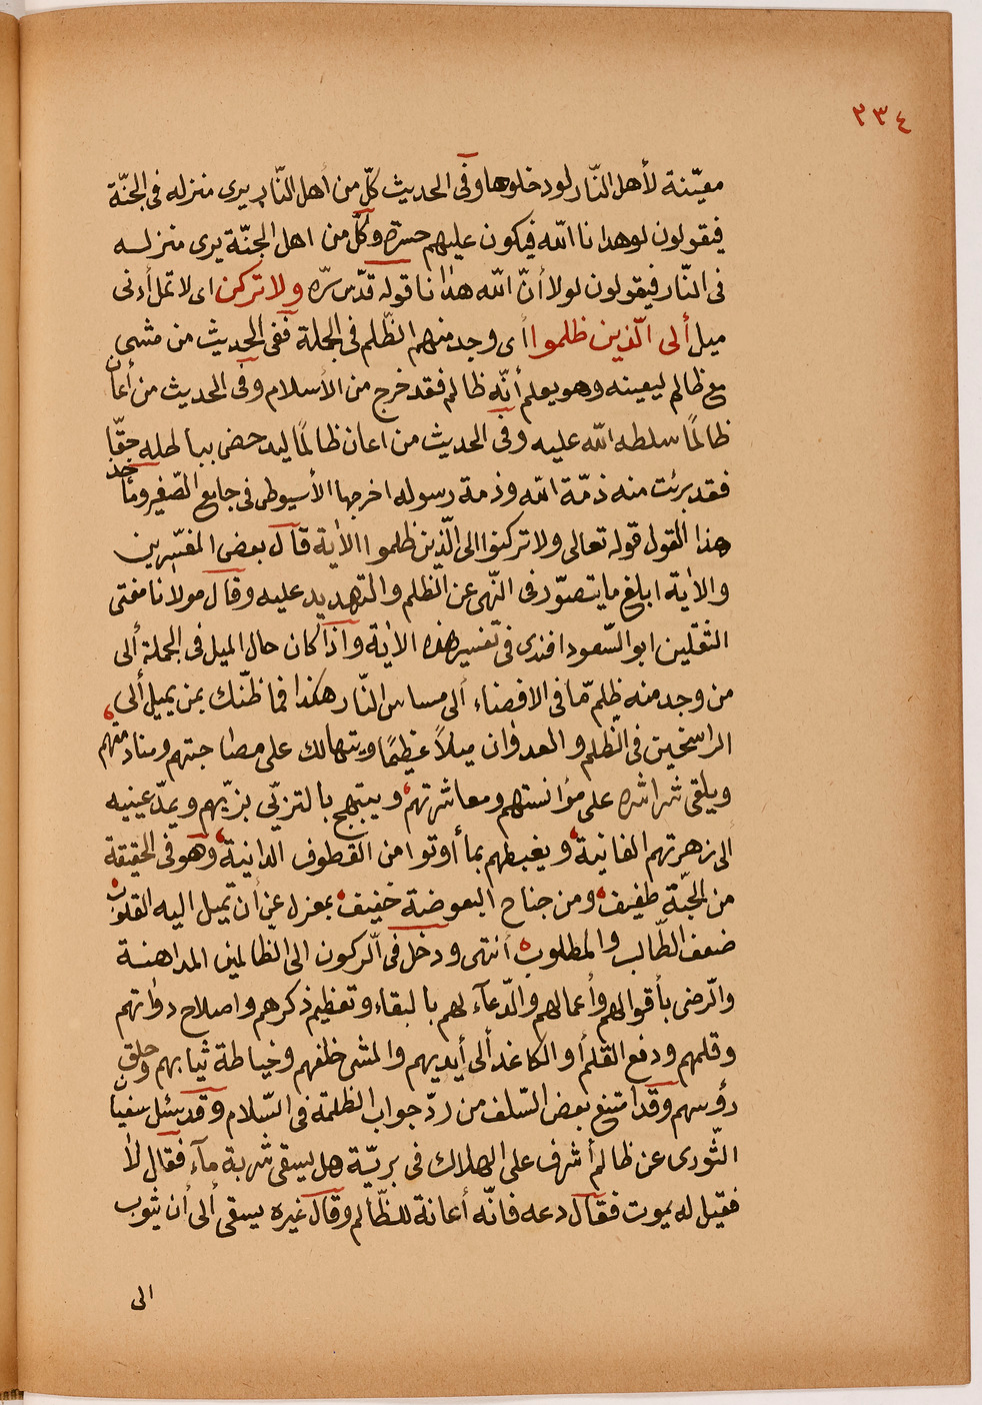 ٣٣٤
معيّنة لأهل النّار لو دخلوها وفى الحديث كلّ من أهل النّار يرى منزله فى الجنّة
فيقولون لو هدانا الله فيكون عليهم حسرة وكلّ من اهل الجنّة يرى منزله
فى النّار فيقولون لولا أنّ الله هدانا قوله قدّس سرّه ولا تركن اى لا تمل أدنى
ميل ألى الّذين ظلموا اى وجد منهم الظّلم فى الجملة ففى الحديث من مشى
مع ظالم ليعينه وهو يعلم أنّه ظالم فقد خرج من الأسلام وفى الحديث من أعان
ظالمًا سلطه الله عليه وفى الحديث من اعان ظالمًا ليدحض بباطله حقّا
فقد برئت منه ذمّة الله وذمة رسوله اخرجها الأسيوطى فى جامع الصّغير ومأخذ
هذا القول قوله تعالى ولا تركنوا الى الّذين ظلموا الاٰية قال بعض المفسّرين
والاٰية ابلغ ما يتصوّر فى النّهى عن الظلم والتهديد عليه وقال مولانا مفتى
الثقلين ابو السّعود افندى فى تفسير هذه الاٰية واذا كان حال الميل فى الجملة ألى
من وجد منه ظلم مّا فى الافضاء ألى مساس النّار هكذا فما ظنّك بمن يميل ألى
الراسخين فى الظلم والعدوان ميلاً عظيمًا ويتهالك على مصاحبتهم ومنادمتهم
ويلقى شراشره على مؤانستهم ومعاشرتهم ويبتهج بالتزيّى بزيّهم ويمدّ عينيه
الى زهرتهم الفانية ويغبطهم بما أوتوا من القطوف الدانية وهو فى الحقيقة
من الحبّة طفيف ومن جناح البعوضة خفيف بمعزل عن ان تميل اليه القلوب
ضعف الطّالب والمطلوب انتهى ودخل فى الركون الى الظالمين المداهنة
والرضى بأقوالهم وأعمالهم والدّعآء لهم بالبقاء وتعظيم ذكرهم واصلاح دواتهم
وقلمهم ودفع القلم أو الكاغد ألى أيديهم والمشى خلفهم وخياطة ثيابهم وحلق
رؤسهم وقد امتنع بعض السّلف من ردّ جواب الظلمة فى السّلام وقد سئل سفيان
الثّورى عن ظالم أشرف على الهلاك فى بريّة هل يسقى شربة مآء فقال لا
فقيل له يموت فقال دعه فانّه أعانة للظّالم وقال غيره يسقى ألى أن يثوب
الى